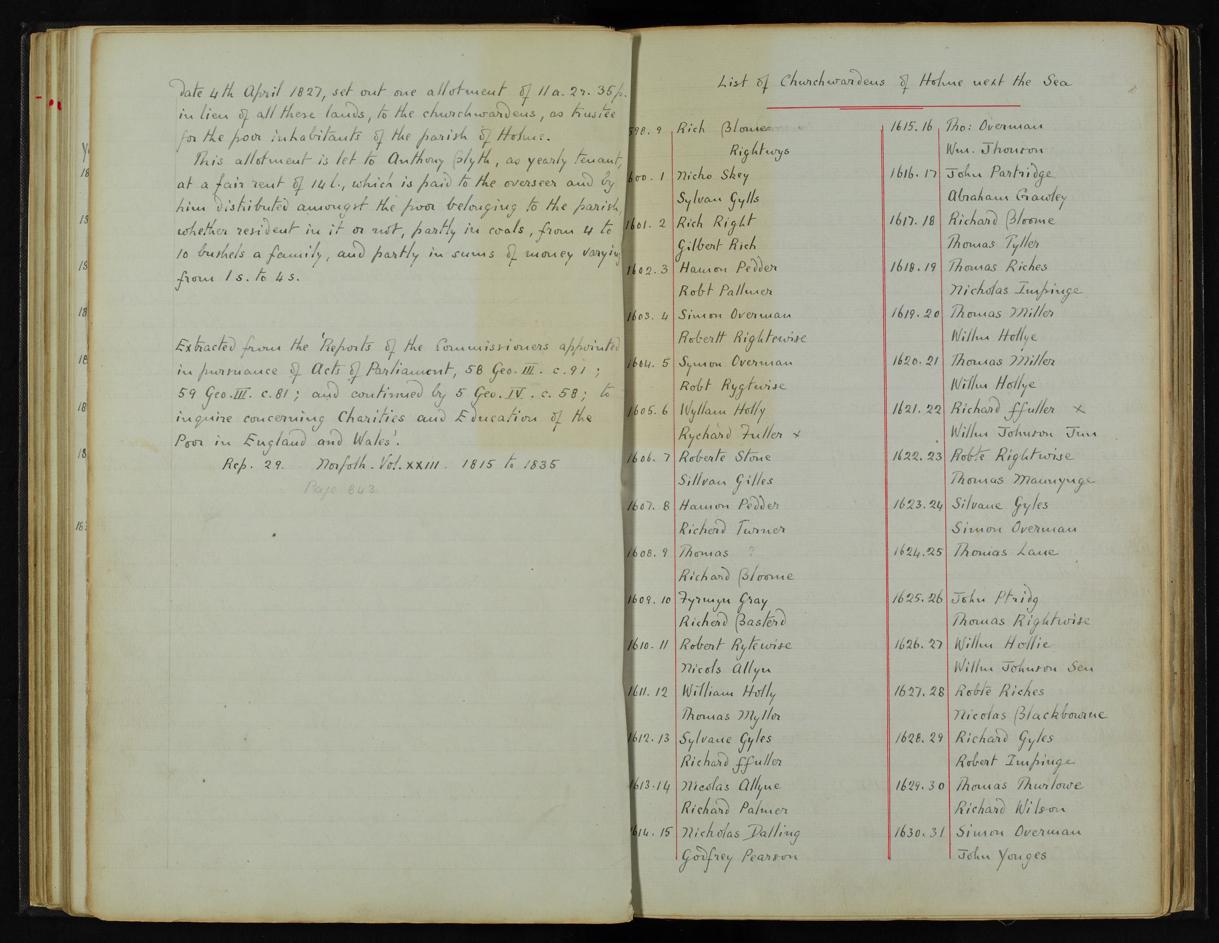 date 4th April 1827, set out one allotment of 11 a. 2r. 35p.
in lieu of all these lands, to the churchwardens, as trustee
for the poor inhabitants of the parish of Holme.
This allotment is let to Anthony Blyth, as yearly tenant,
at a fair rent of 14 l., which is paid to the overseer and by
him distributed amongst the poor belonging to the parish,
whether resident in it or not, partly in coals, from 4 to
10 bushels a family, and partly in sums of money varying
from 1 s. to 4 s.
Extracted from the 'Reports of the Commissioners appointed
in pursuance of Acts of Parliament, 58 Geo. III. c. 91 ;
59 Geo. III. c. 81 ; and continued by 5 Geo. IV. c. 58 ; to
inquire concerning Charities and Education of the
Poor in England and Wales'.
Rep. 29. Norfolk. Vol. XXIII. 1815 to 1835
Page 843
List of Churchwardens of Holme next the Sea
598. 9 Rich Bloome
Rightwys
1600. 1 Nicho Skey
Sylvan Gylls
1601. 2 Rich Right
Gilbert Rich
1602. 3 Hamon Pedder
Robt Pallmer
1603. 4 Simon Overman
Robertt Rightewise
1604. 5 Symon Overman
Robt Rygtwise
1605. 6 Wyllam Holly
Rychard Fuller x
1606. 7 Roberte Stone
Sillvan Gilles
1607. 8 Hamon Pedder
Richerd Turner
1608. 9 Thomas ?
Richard Bloome
1609. 10 Fyrmyn Gray
Richerd Basterd
1610. 11 Robert Rytewise
Nicols Allyn
1611. 12 William Holly
Thomas Myller
1612. 13 Sylvane Gyles
Richard ffuller
1613. 14 Nicolas Allyne
Richard Palmer
1614. 15 Nicholas Dalling
Godfrey Pearson
1615. 16 Tho: Overman
Wm. Jhonson
1616. 17 John Partridge
Abraham Crawley
1617. 18 Richard Bloome
Thomas Tyller
1618. 19 Thomas Riches
Nicholas Impinge
1619. 20 Thomas Miller
Willm Hollye
1620. 21 Thomas Miller
Willm Hollye
1621. 22 Richard ffuller x
Willm Johnson Jun
1622. 23 Robte Rightwise
Thomas Mannynge
1623. 24 Silvane Gyles
Simon Overman
1624. 25 Thomas Lane
1625. 26 John Ptridg
Thomas Rightwise
1626. 27 Willm Hollie
Willm Johnson Sen
1627. 28 Robte Riches
Nicolas Blackbourne
1628. 29 Richard Gyles
Robert Impinge
1629. 30 Thomas Thurlowe
Richard Wilson
1630. 31 Simon Overman
John Yonges